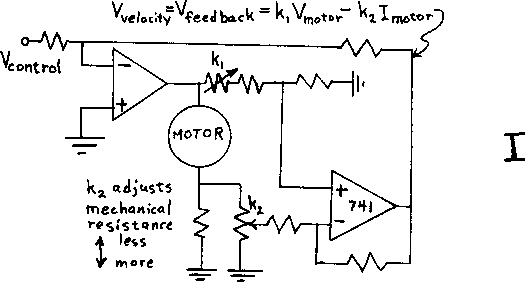 Vvelocity = Vfeedback = k₁ Vmotor - k₂ Imotor
Vcontrol
k₁
-
+
MOTOR
I
k₂ adjusts
mechanical
resistance
less
more
k₂
+
741
-